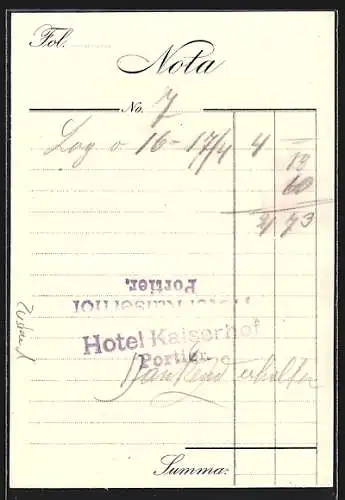 Fol.
Nota
No. 7
Log v 16 - 17/4 4 —
13
60
4 73
Portier,
Hotel Kaiserhof
Hotel Kaiserhof
Portier.
Dankend erhalten
Summa: